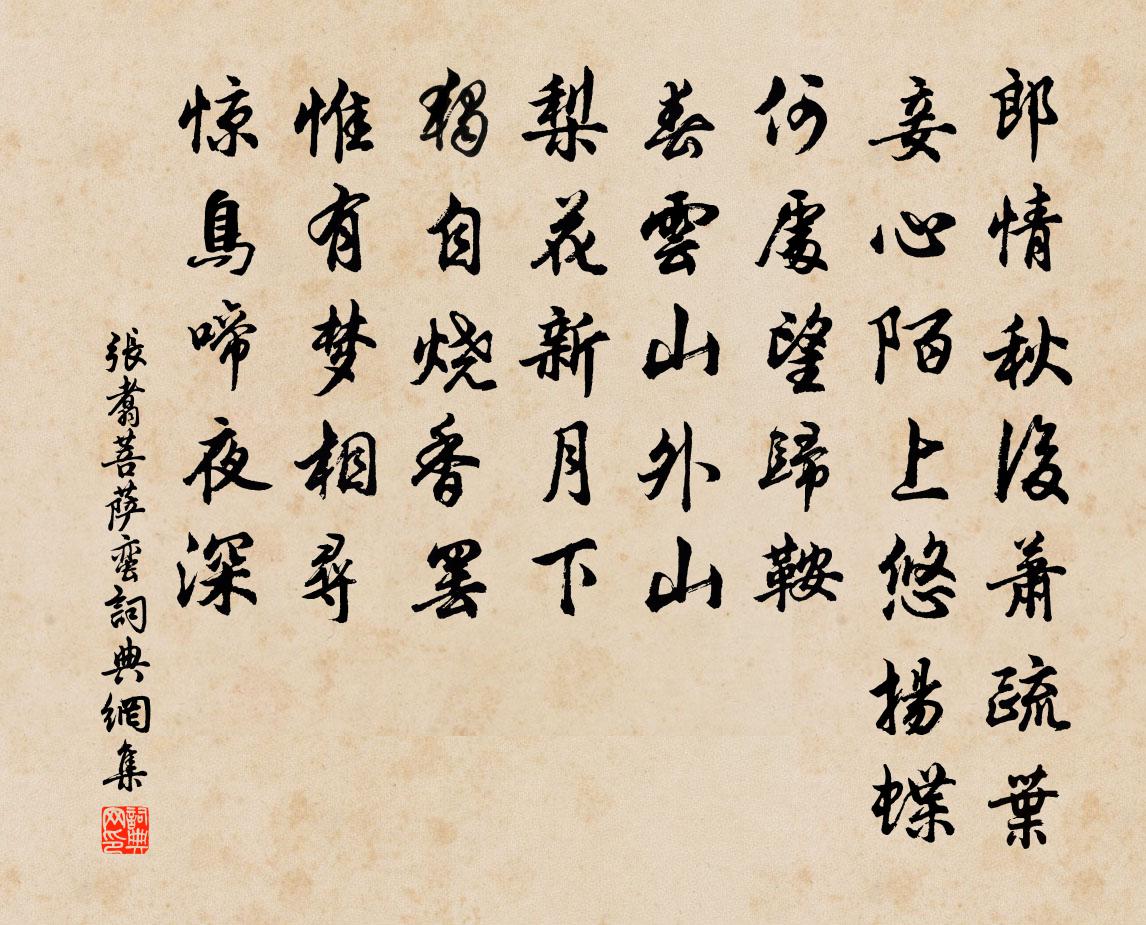 郎情秋後蕭疏葉
妾心陌上悠揚蝶
何處望歸鞍
春雲山外山
梨花新月下
獨自燒香罷
惟有梦相尋
惊鳥啼夜深
張翥菩薩蛮詞典網集
詞典网印